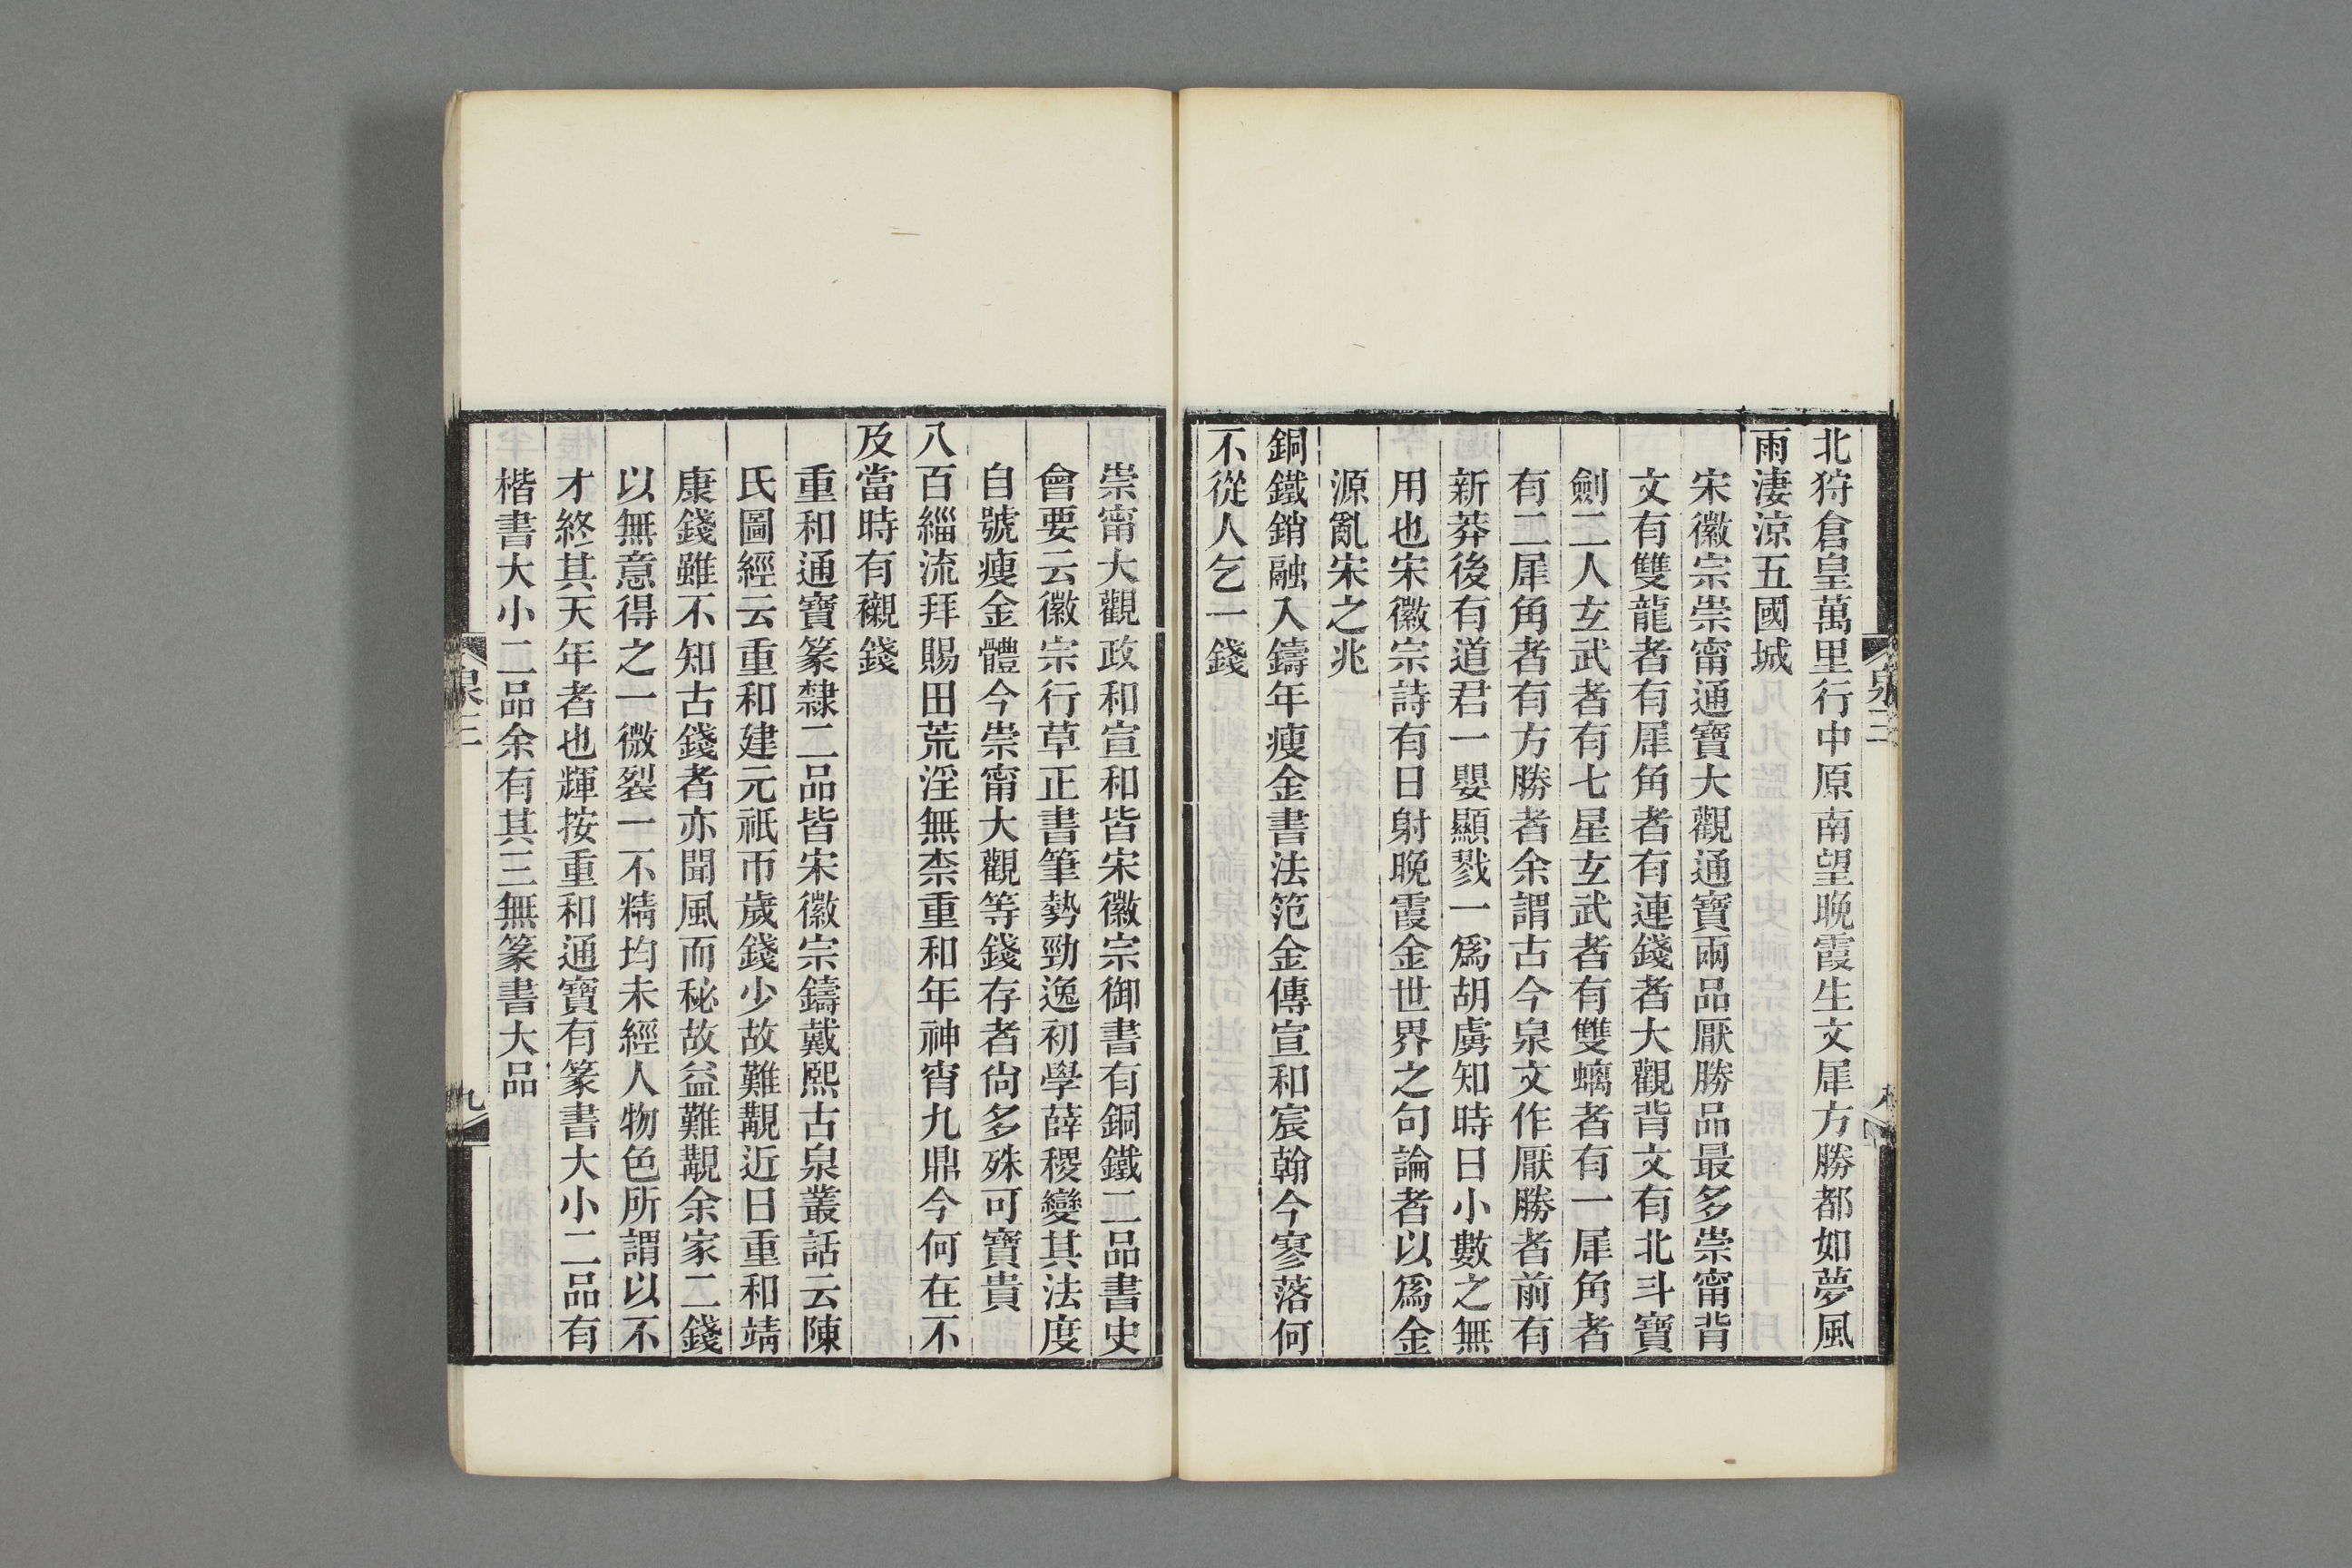 北狩倉皇萬里行中原南望晚霞生文犀方勝都如夢風
雨淒涼五國城
宋徽宗崇甯通寶大觀通寶兩品厭勝品最多崇甯背
文有雙龍者有犀角者有連錢者大觀背文有北斗寶
劍二人玄武者有七星玄武者有雙螭者有一犀角者
有二犀角者有方勝者余謂古今泉文作厭勝者前有
新莽後有道君一嬰顯戮一爲胡虜知時日小數之無
用也宋徽宗詩有日射晚霞金世界之句論者以爲金
源亂宋之兆
銅鐵銷融入鑄年瘦金書法范金傳宣和宸翰今寥落何
不從人乞一錢
泉三
九
崇甯大觀政和宣和皆宋徽宗御書有銅鐵二品書史
會要云徽宗行草正書筆勢勁逸初學薛稷變其法度
自號瘦金體今崇甯大觀等錢存者尙多殊可寶貴
八百緇流拜賜田荒淫無柰重和年神宵九鼎今何在不
及當時有襯錢
重和通寶篆隸二品皆宋徽宗鑄戴熙古泉叢話云陳
氏圖經云重和建元祇帀歲錢少故難觀近日重和靖
康錢雖不知古錢者亦聞風而秘故益難觀余家二錢
以無意得之一微裂一不精均未經人物色所謂以不
才終其天年者也輝按重和通寶有篆書大小二品有
楷書大小二品余有其三無篆書大品
泉三
九